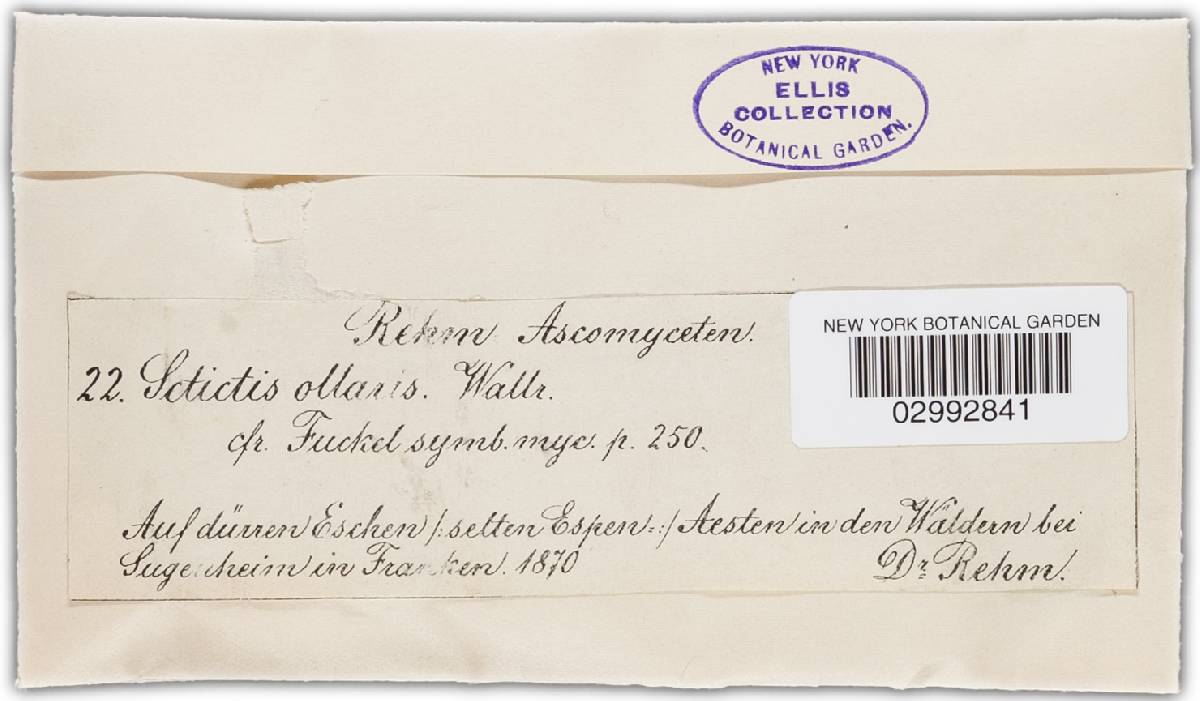 NEW YORK
ELLIS
COLLECTION
BOTANICAL GARDEN.
Rehm Ascomyceten.
NEW YORK BOTANICAL GARDEN
02992841
22. Sctictis ollaris. Wallr.
cfr. Fuckel symb. myc. p. 250.
Auf dürren Eschen /: selten Espen-:/ Aesten in den Wäldern bei
Sugenheim in Franken. 1870 Dr. Rehm.